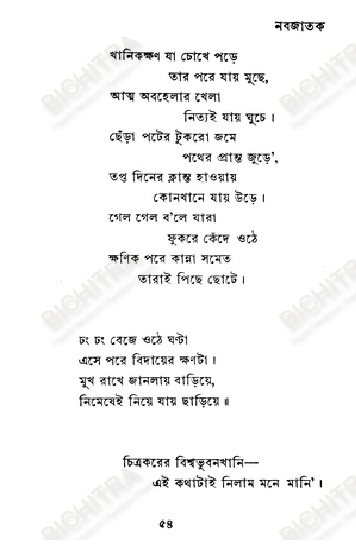 নবজাতক
খানিকক্ষণ যা চোখে পড়ে
তার পরে যায় মুছে,
আত্ম অবহেলার খেলা
নিত্যই যায় ঘুচে।
ছেঁড়া পটের টুকরো জমে
পথের প্রান্ত জুড়ে',
তপ্ত দিনের ক্লান্ত হাওয়ায়
কোনখানে যায় উড়ে।
গেল গেল ব'লে যারা
ফুকরে কেঁদে ওঠে
ক্ষণিক পরে কান্না সমেত
তারাই পিছে ছোটে।
ঢং ঢং বেজে ওঠে ঘণ্টা
এসে পরে বিদায়ের ক্ষণটা।
মুখ রাখে জানলায় বাড়িয়ে,
নিমেষেই নিয়ে যায় ছাড়িয়ে॥
চিত্রকরের বিশ্বভুবনখানি—
এই কথাটাই নিলাম মনে মানি'।
৫৪
BICHITRA
BICHITRA
BICHITRA
BICHITRA
BICHITRA
BICHITRA